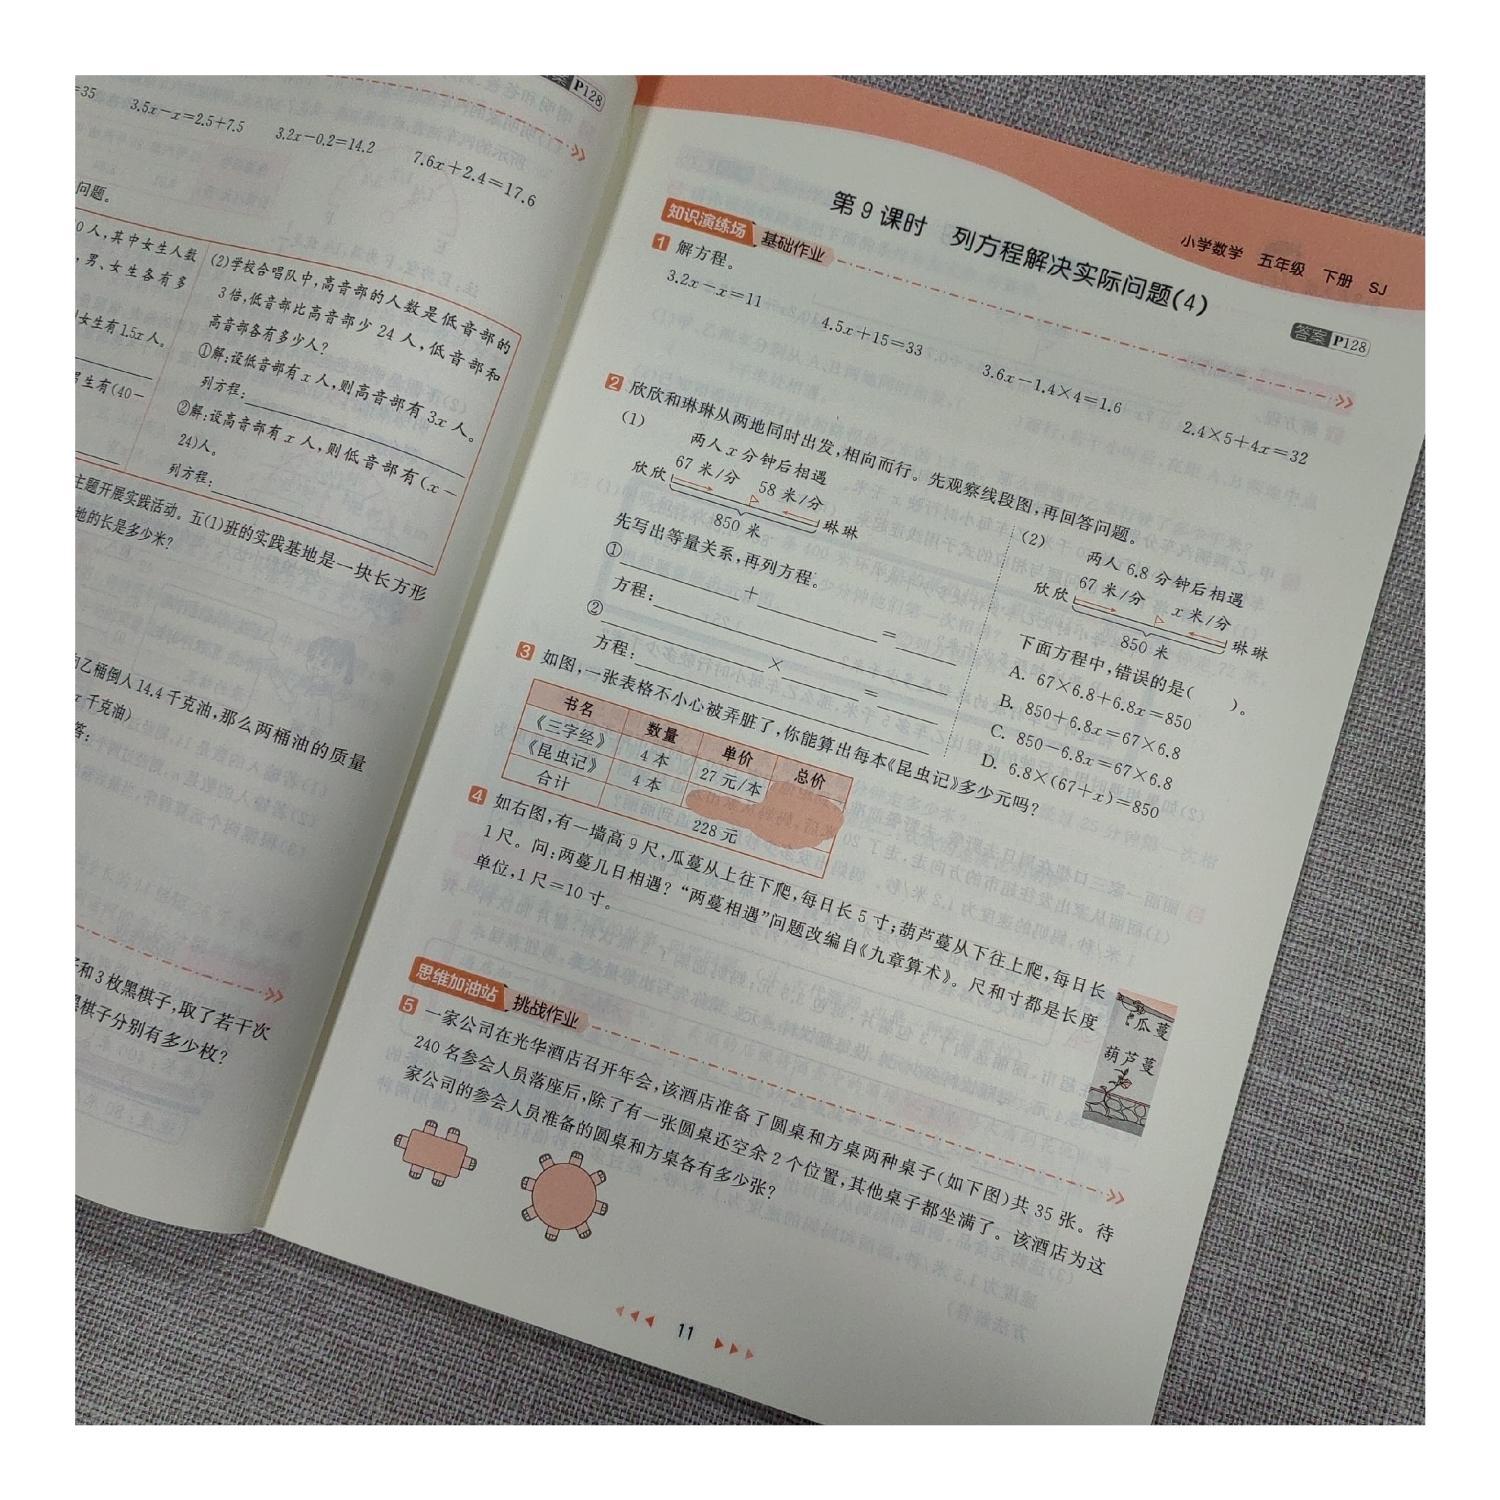 答案 P128
=35
3.5x-x=2.5+7.5
3.2x-0.2=14.2
7.6x+2.4=17.6
问题。
0人,其中女生人数
,男、女生各有多
女生有1.5x人。
男生有(40-
(2)学校合唱队中,高音部的人数是低音部的
3倍,低音部比高音部少24人,低音部和
高音部各有多少人?
①解:设低音部有x人,则高音部有3x人。
列方程:
②解:设高音部有x人,则低音部有(x-
24)人。
列方程:
主题开展实践活动。五(1)班的实践基地是一块长方形
地的长是多少米?
向乙桶倒入14.4千克油,那么两桶油的质量
x千克油)
答:
子和3枚黑棋子,取了若干次
黑棋子分别有多少枚?
小学数学 五年级 下册 SJ
第9课时 列方程解决实际问题(4)
答案 P128
知识演练场 基础作业
1 解方程。
3.2x-x=11
4.5x+15=33
3.6x-1.4×4=1.6
2.4×5+4x=32
2 欣欣和琳琳从两地同时出发,相向而行。先观察线段图,再回答问题。
(1)
两人x分钟后相遇
67米/分
58米/分
欣欣
琳琳
850米
先写出等量关系,再列方程。
① + =
方程:
② × =
方程:
(2)
两人6.8分钟后相遇
67米/分
x米/分
欣欣
琳琳
850米
下面方程中,错误的是( )。
A. 67×6.8+6.8x=850
B. 850+6.8x=67×6.8
C. 850-6.8x=67×6.8
D. 6.8×(67+x)=850
3 如图,一张表格不小心被弄脏了,你能算出每本《昆虫记》多少元吗?
书名 数量 单价 总价
《三字经》 4本 27元/本
《昆虫记》 4本
合计 228元
4 如右图,有一墙高9尺,瓜蔓从上往下爬,每日长5寸;葫芦蔓从下往上爬,每日长
1尺。问:两蔓几日相遇?“两蔓相遇”问题改编自《九章算术》。尺和寸都是长度
单位,1尺=10寸。
瓜蔓
葫芦蔓
思维加油站 挑战作业
5 一家公司在光华酒店召开年会,该酒店准备了圆桌和方桌两种桌子(如下图)共35张。待
240名参会人员落座后,除了有一张圆桌还空余2个位置,其他桌子都坐满了。该酒店为这
家公司的参会人员准备的圆桌和方桌各有多少张?
11